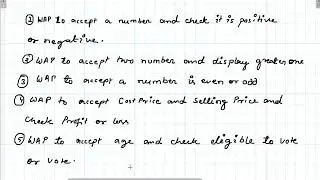 ① WAP to accept a number and check it is positive
or negative.
② WAP to accept two number and display greater one
③ WAP to accept a number is even or odd
④ WAP to accept Cost Price and Selling Price and
Check Profit or loss
⑤ WAP to accept age and check eligible to vote
or vote.